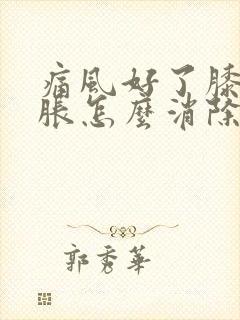 痛風好了膝
脹怎麼消除
郭秀華